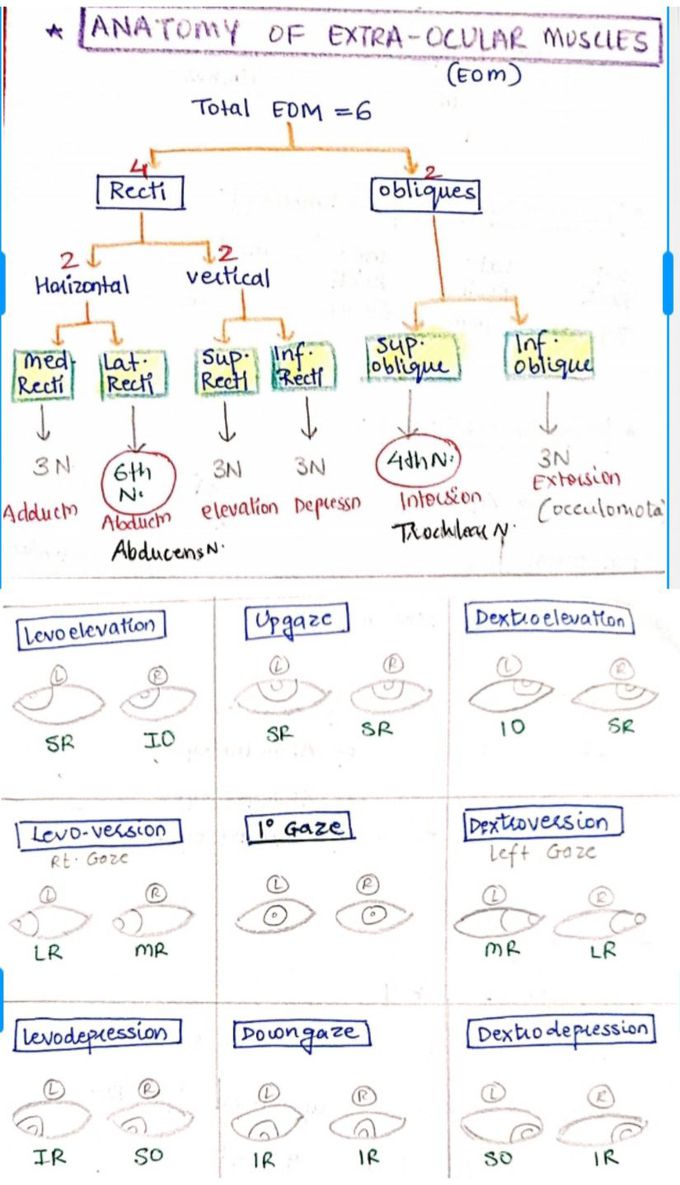 * ANATOMY OF EXTRA-OCULAR MUSCLES
(EOM)
Total EOM = 6
4 2
Recti obliques
2 2
Horizontal vertical
med. Recti
Lat. Recti
Sup. Recti
Inf. Recti
Sup. oblique
Inf. oblique
3N 6th N. 3N 3N 4th N. 3N
Adductn Abductn elevation Depressn Intorsion Extorsion
Abducens N. Trochlear N. (occulomotor
Levoelevation Upgaze Dextroelevation
L R L R L R
SR IO SR SR IO SR
Levo-version 1° Gaze Dextroversion
Rt. Gaze Left Gaze
L R L R L R
LR MR MR LR
Levodepression Downgaze Dextrodepression
L R L R L R
IR SO IR IR SO IR